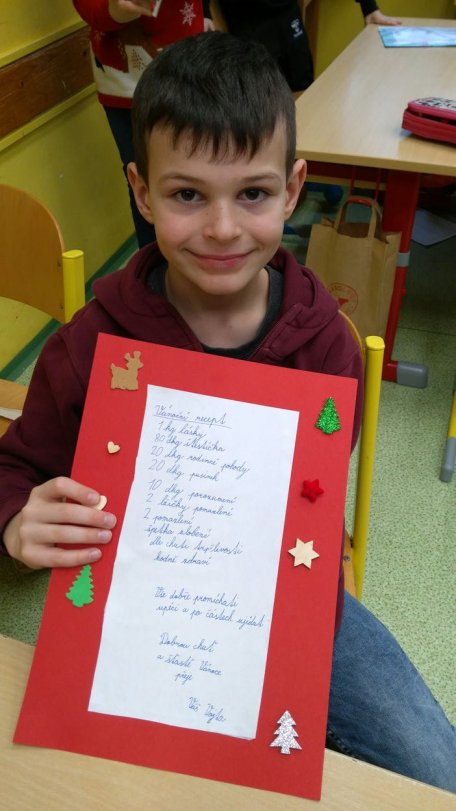 Vánoční recept
1 kg lásky
80 dkg štěstíčka
20 dkg rodinné pohody
20 dkg pusinek
10 dkg porozumění
2 lžičky pomazlení
2 pomazlení
špetka zlobení
dle chuti trpělivosti
hodně zdraví
Vše dobře promíchati
upéci a po částech ujídat
Dobrou chuť
a šťasté Vánoce
přeje
Váš Vojta